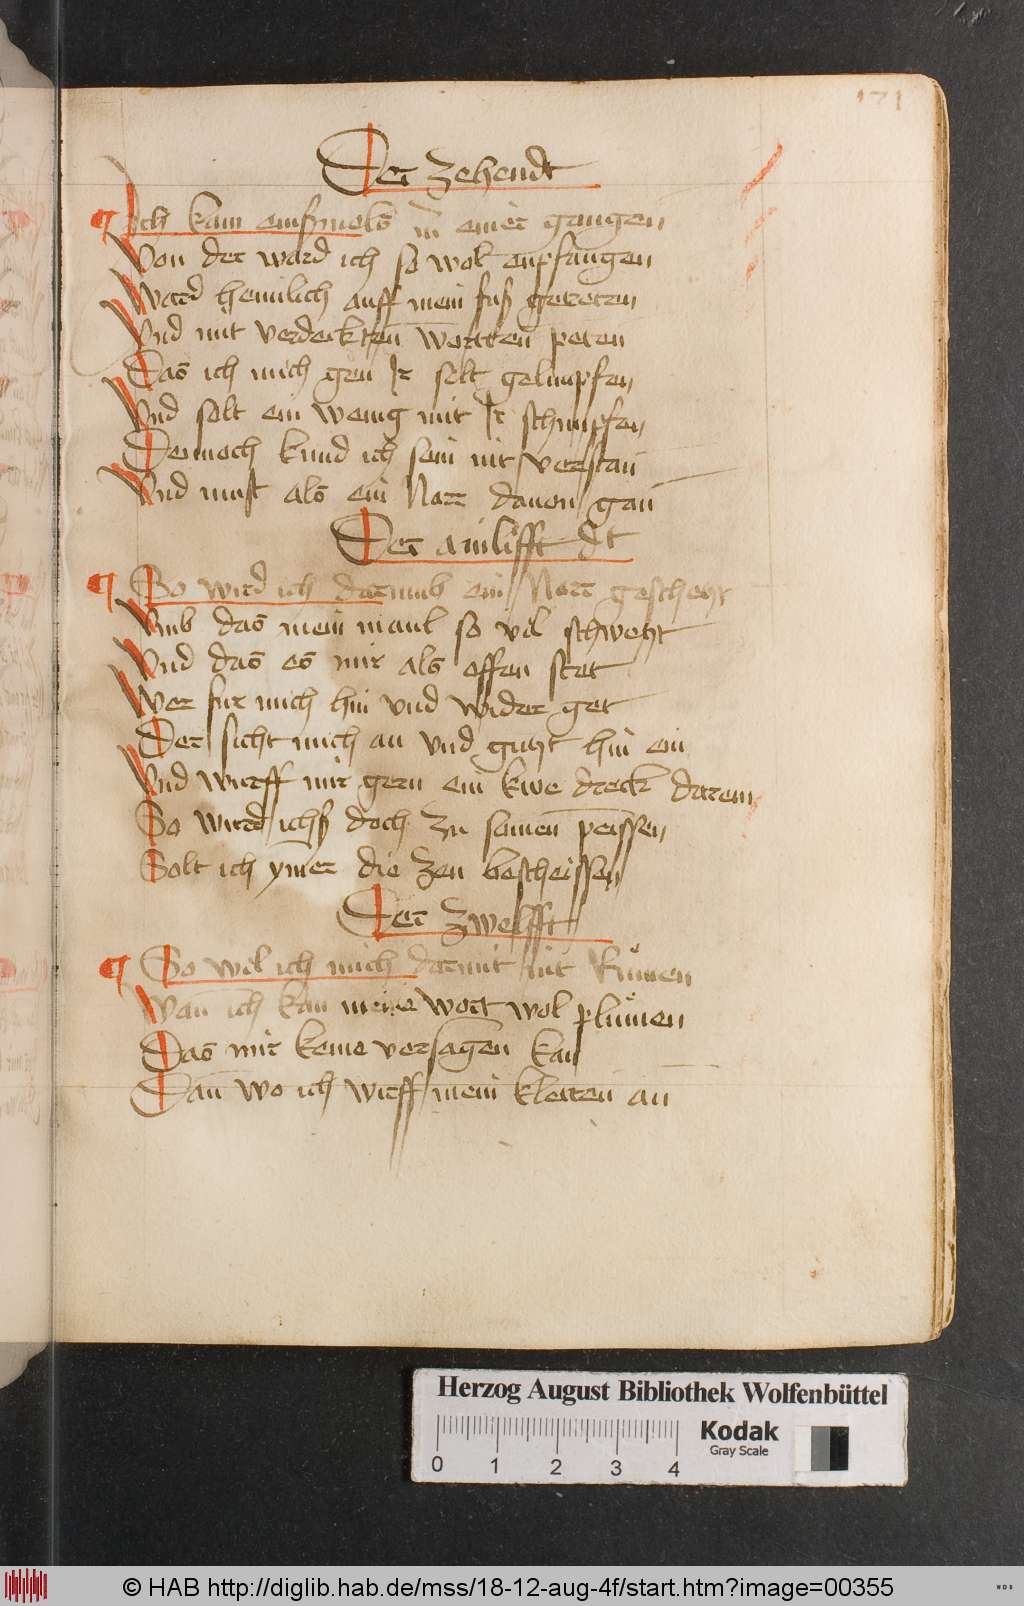 171
Der zehendt
Ich kam einßmols in einer gangen
Von der ward ich so wol enpfangen
Ward heimlich auff mein fuß getreten
Und mit verdeckten wortten peten
Das ich mich gen Ir solt gelimpfen
Und solt ein wenig mit Ir schimpfen
Dennoch kund ich sein nit verstan
Und must als ein Narr dauon gan
Der ainlifft dt
So wird ich darumb ein Narr geschetzt
Umb das mein maul so vil schwetzt
Und das es mir als offen stet
Wer fur mich hin und wider get
Der sicht mich an und gutzt hin ein
Und wurff mir gern ein kwe dreck darein
So wird ichs doch zu samen peissen
Solt ich ymer die zen bescheissen
Der zwelfft
So wil ich mich darmit nit Rümen
Wan ich kan meine wort wol plümen
Das mir keine versagen kan
Dan wo ich wirff mein kletten an
Herzog August Bibliothek Wolfenbüttel
Kodak
Gray Scale
0 1 2 3 4
© HAB http://diglib.hab.de/mss/18-12-aug-4f/start.htm?image=00355